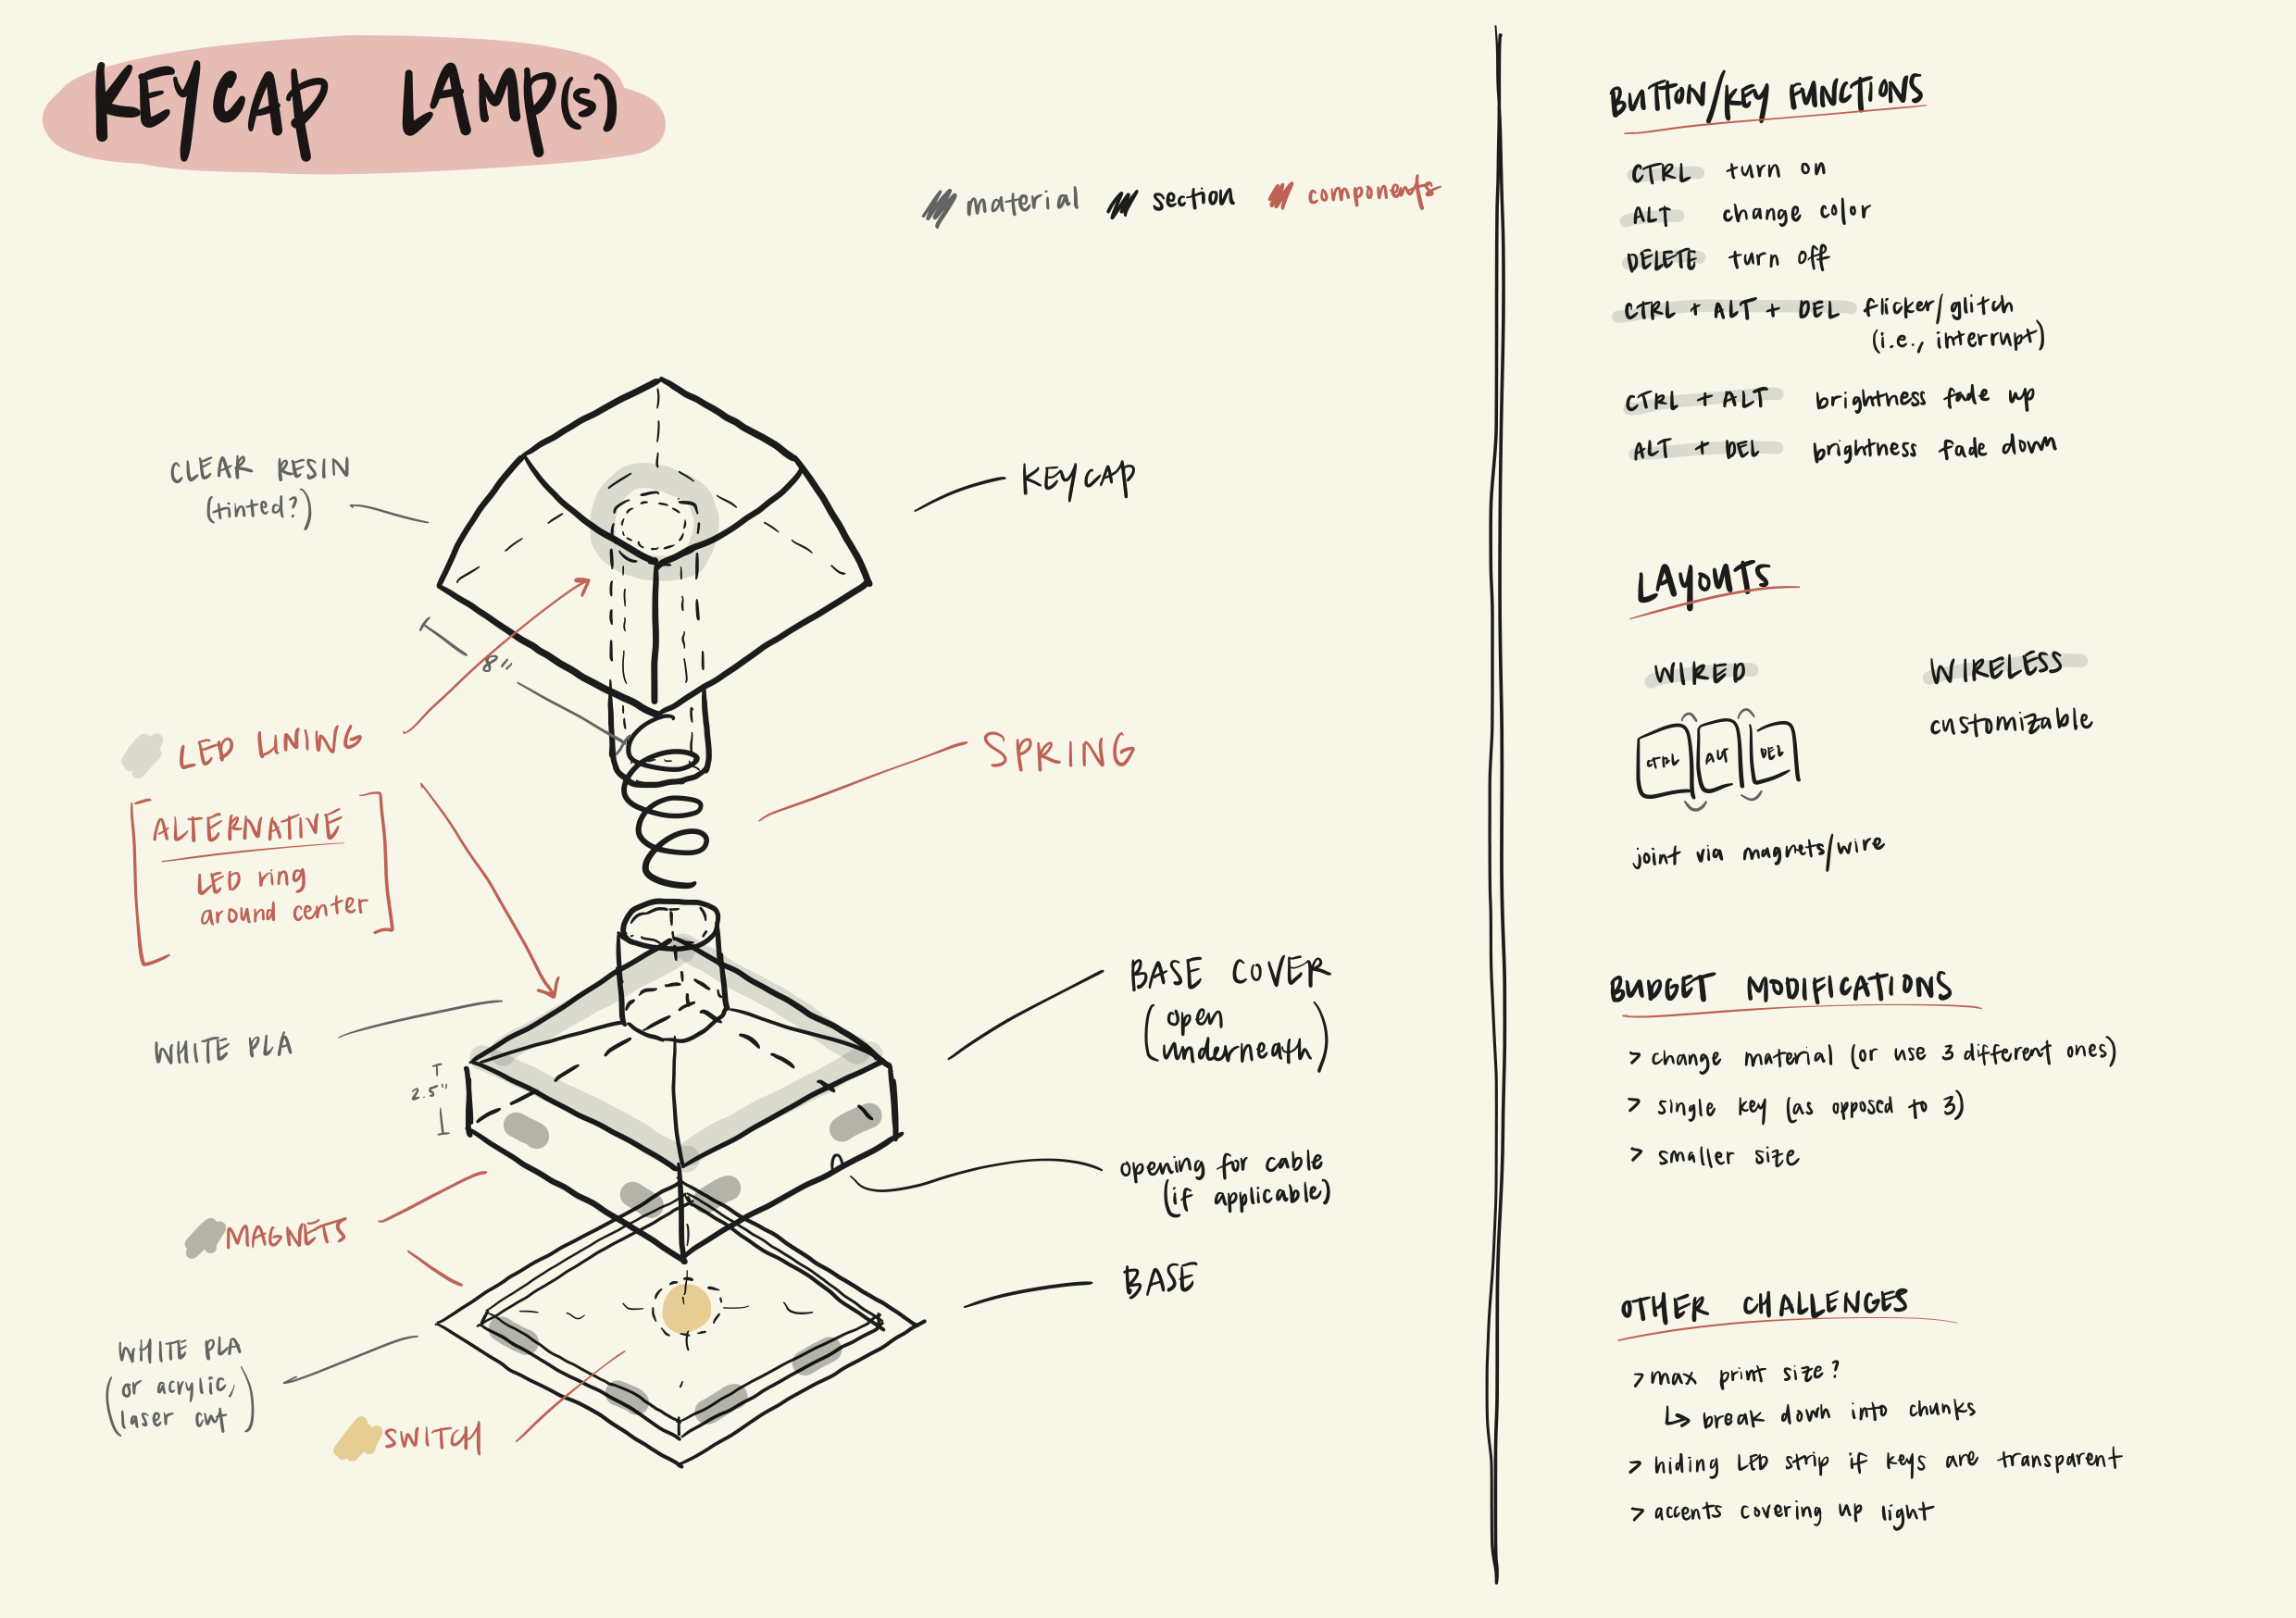 KEYCAP LAMP(s)
material section components
CLEAR RESIN
(tinted?)
KEYCAP
8"
LED LINING
SPRING
[ALTERNATIVE
LED ring
around center]
WHITE PLA
2.5"
BASE COVER
(open
underneath)
opening for cable
(if applicable)
MAGNETS
BASE
WHITE PLA
(or acrylic,
laser cut)
SWITCH
BUTTON/KEY FUNCTIONS
CTRL turn on
ALT change color
DELETE turn off
CTRL + ALT + DEL flicker/glitch
(i.e., interrupt)
CTRL + ALT brightness fade up
ALT + DEL brightness fade down
LAYOUTS
WIRED
CTRL ALT DEL
joint via magnets/wire
WIRELESS
customizable
BUDGET MODIFICATIONS
> change material (or use 3 different ones)
> single key (as opposed to 3)
> smaller size
OTHER CHALLENGES
> max print size?
↳ break down into chunks
> hiding LED strip if keys are transparent
> accents covering up light